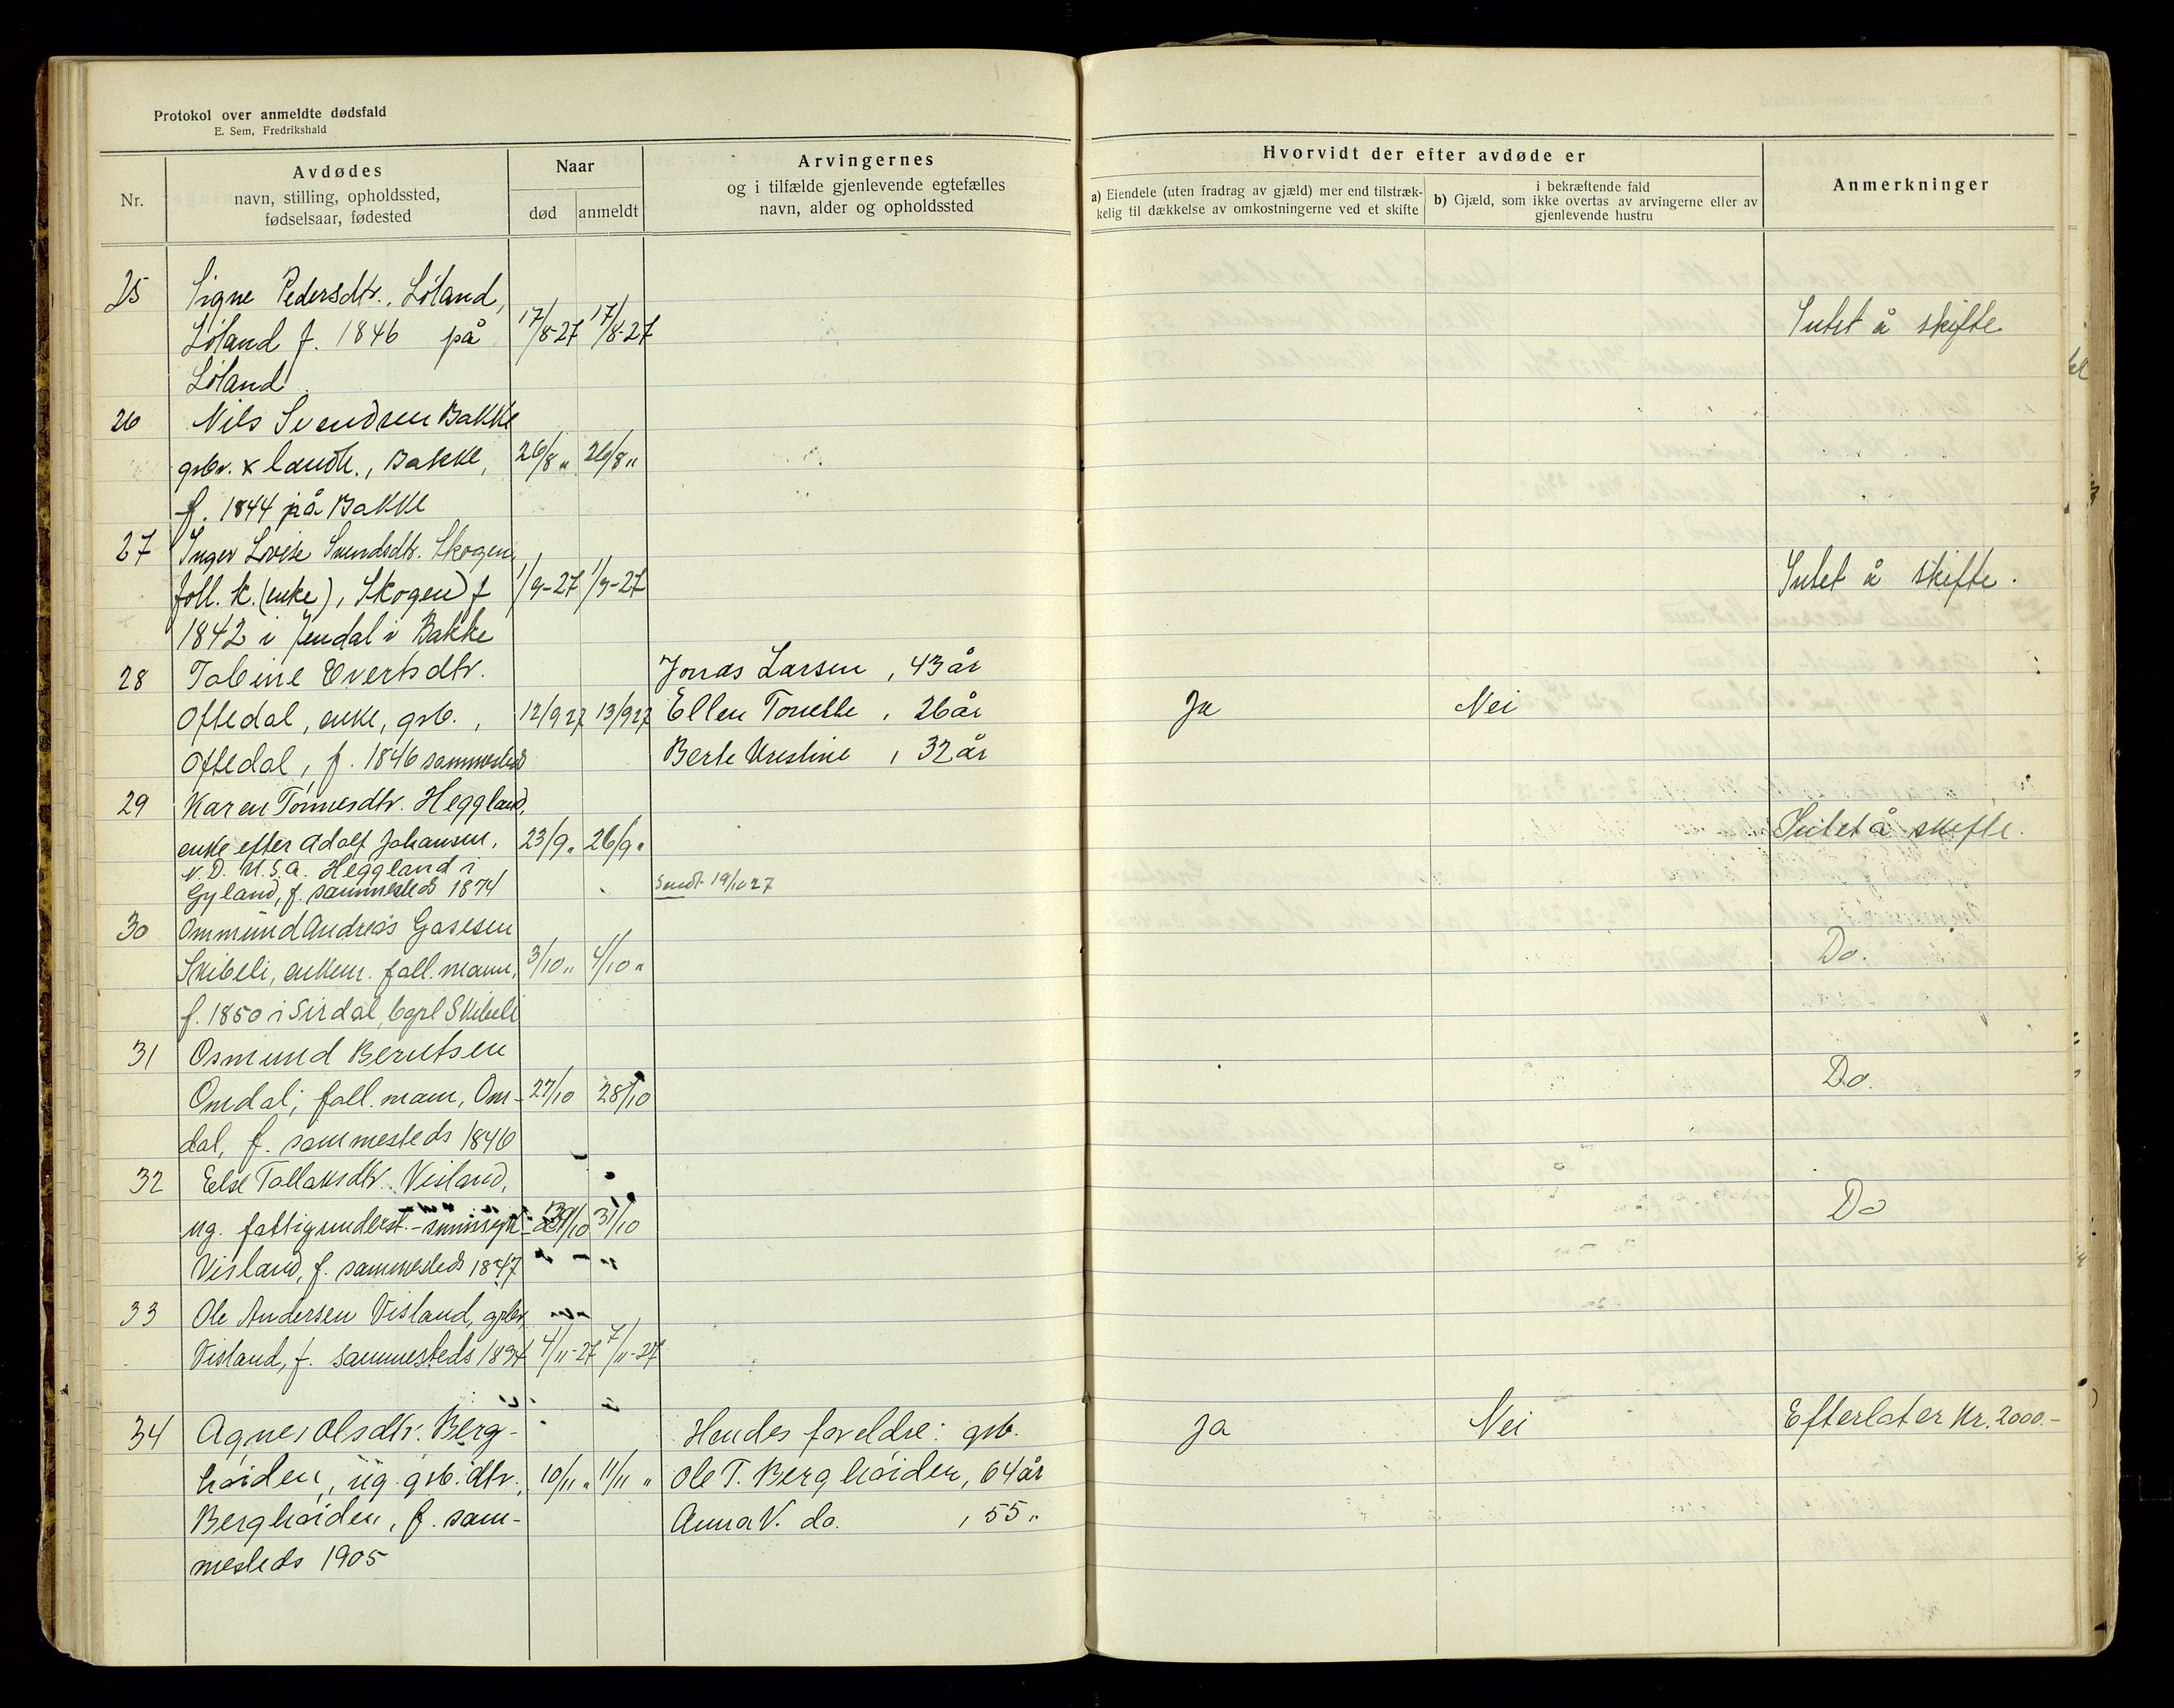 Protokol over anmeldte dødsfald
E. Sem, Fredrikshald
Nr.
Avdødes
navn, stilling, opholdssted,
fødselsaar, fødested
Naar
død
anmeldt
Arvingernes
og i tilfælde gjenlevende egtefælles
navn, alder og opholdssted
Hvorvidt der efter avdøde er
a) Eiendele (uten fradrag av gjæld) mer end tilstræk-
kelig til dækkelse av omkostningerne ved et skifte
i bekræftende fald
b) Gjæld, som ikke overtas av arvingerne eller av
gjenlevende hustru
Anmerkninger
25 Signe Pedersdtr. Löland,
Löland f. 1846 på 17/8-27 17/8-27 Intet å skifte
Löland
26 Nils Svendsen Bakke
grbr. & landh., Bakke, 26/8 " 26/8 "
f. 1844 på Bakke
27 Inger Lovise Svendsdtr. Skogen,
foll. k. (enke), Skogen f 1/9-27 1/9-27 Intet å skifte.
1842 i Jendal i Bakke
28 Tobine Evertsdtr. Jonas Larsen, 43 år
Oftedal, enke, grb., 12/9 27 13/9 27 Ellen Tonette, 26 år Ja Nei
Oftedal, f. 1846 sammesteds Berte Kristine, 32 år
29 Karen Tönnesdtr. Heggland,
enke efter Adolf Johansen, 23/9 " 26/9 " Intet å skifte.
N.D. U.S.A. Heggland i
Gyland, f. sammesteds 1874 Sendt 19/10 27
30 Ommund Andreas Gasesen
Skibeli, enkem. fall. mann, 3/10 " 4/10 " Do.
f. 1850 i Sirdal, bopl Skibeli
31 Osmund Berntsen
Omdal, fall. mann, Om- 27/10 28/10 Do.
dal, f. sammesteds 1846
32 Else Tollaksdtr. Visland,
ug. fattigunderst. 31/10 Do
Visland, f. sammesteds 1847
33 Ole Andersen Visland, grbr,
Visland, f. sammesteds 1834 4/11-27 7/11-27
34 Agnes Olsdtr. Berg- Hendes foreldre: grb. Ja Nei Efterlater Kr. 2000.-
höiden, ug. grb. dtr., 10/11 " 11/11 " Ole T. Berghöiden, 64 år
Berghöiden, f. sam- Anna V. do. , 55 "
mesteds 1905